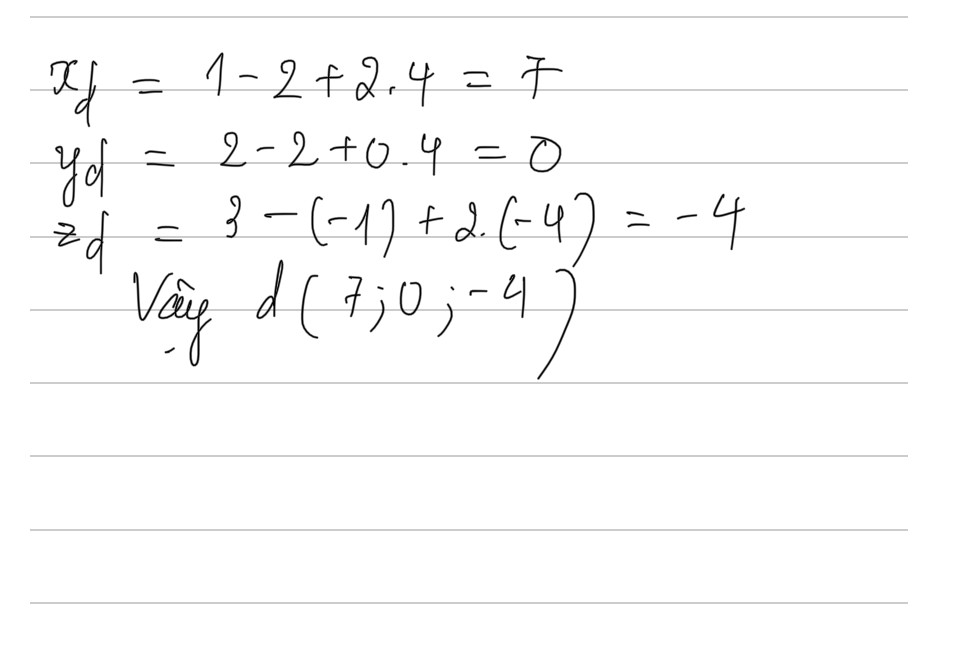 xd = 1 - 2 + 2.4 = 7
yd = 2 - 2 + 0.4 = 0
zd = 3 - (-1) + 2.(-4) = -4
Vậy d(7;0;-4)